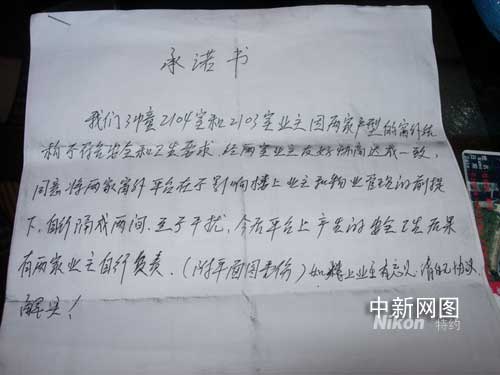 承诺书
我们3#幢2104室和2103室业主因两家户型的窗外结
不符合安全和卫生要求,经两室业主友好协商达成一致,
同意将两家窗外平台在不影响楼上业主和物业管理的前提
下,自行隔成两间.互不干扰,今后平台上产生的安全卫生后果
有两家业主自行负责。(附平面图壹份)如楼上业主有意议.请自己协议
解决!
中新网图
Nikon 特约